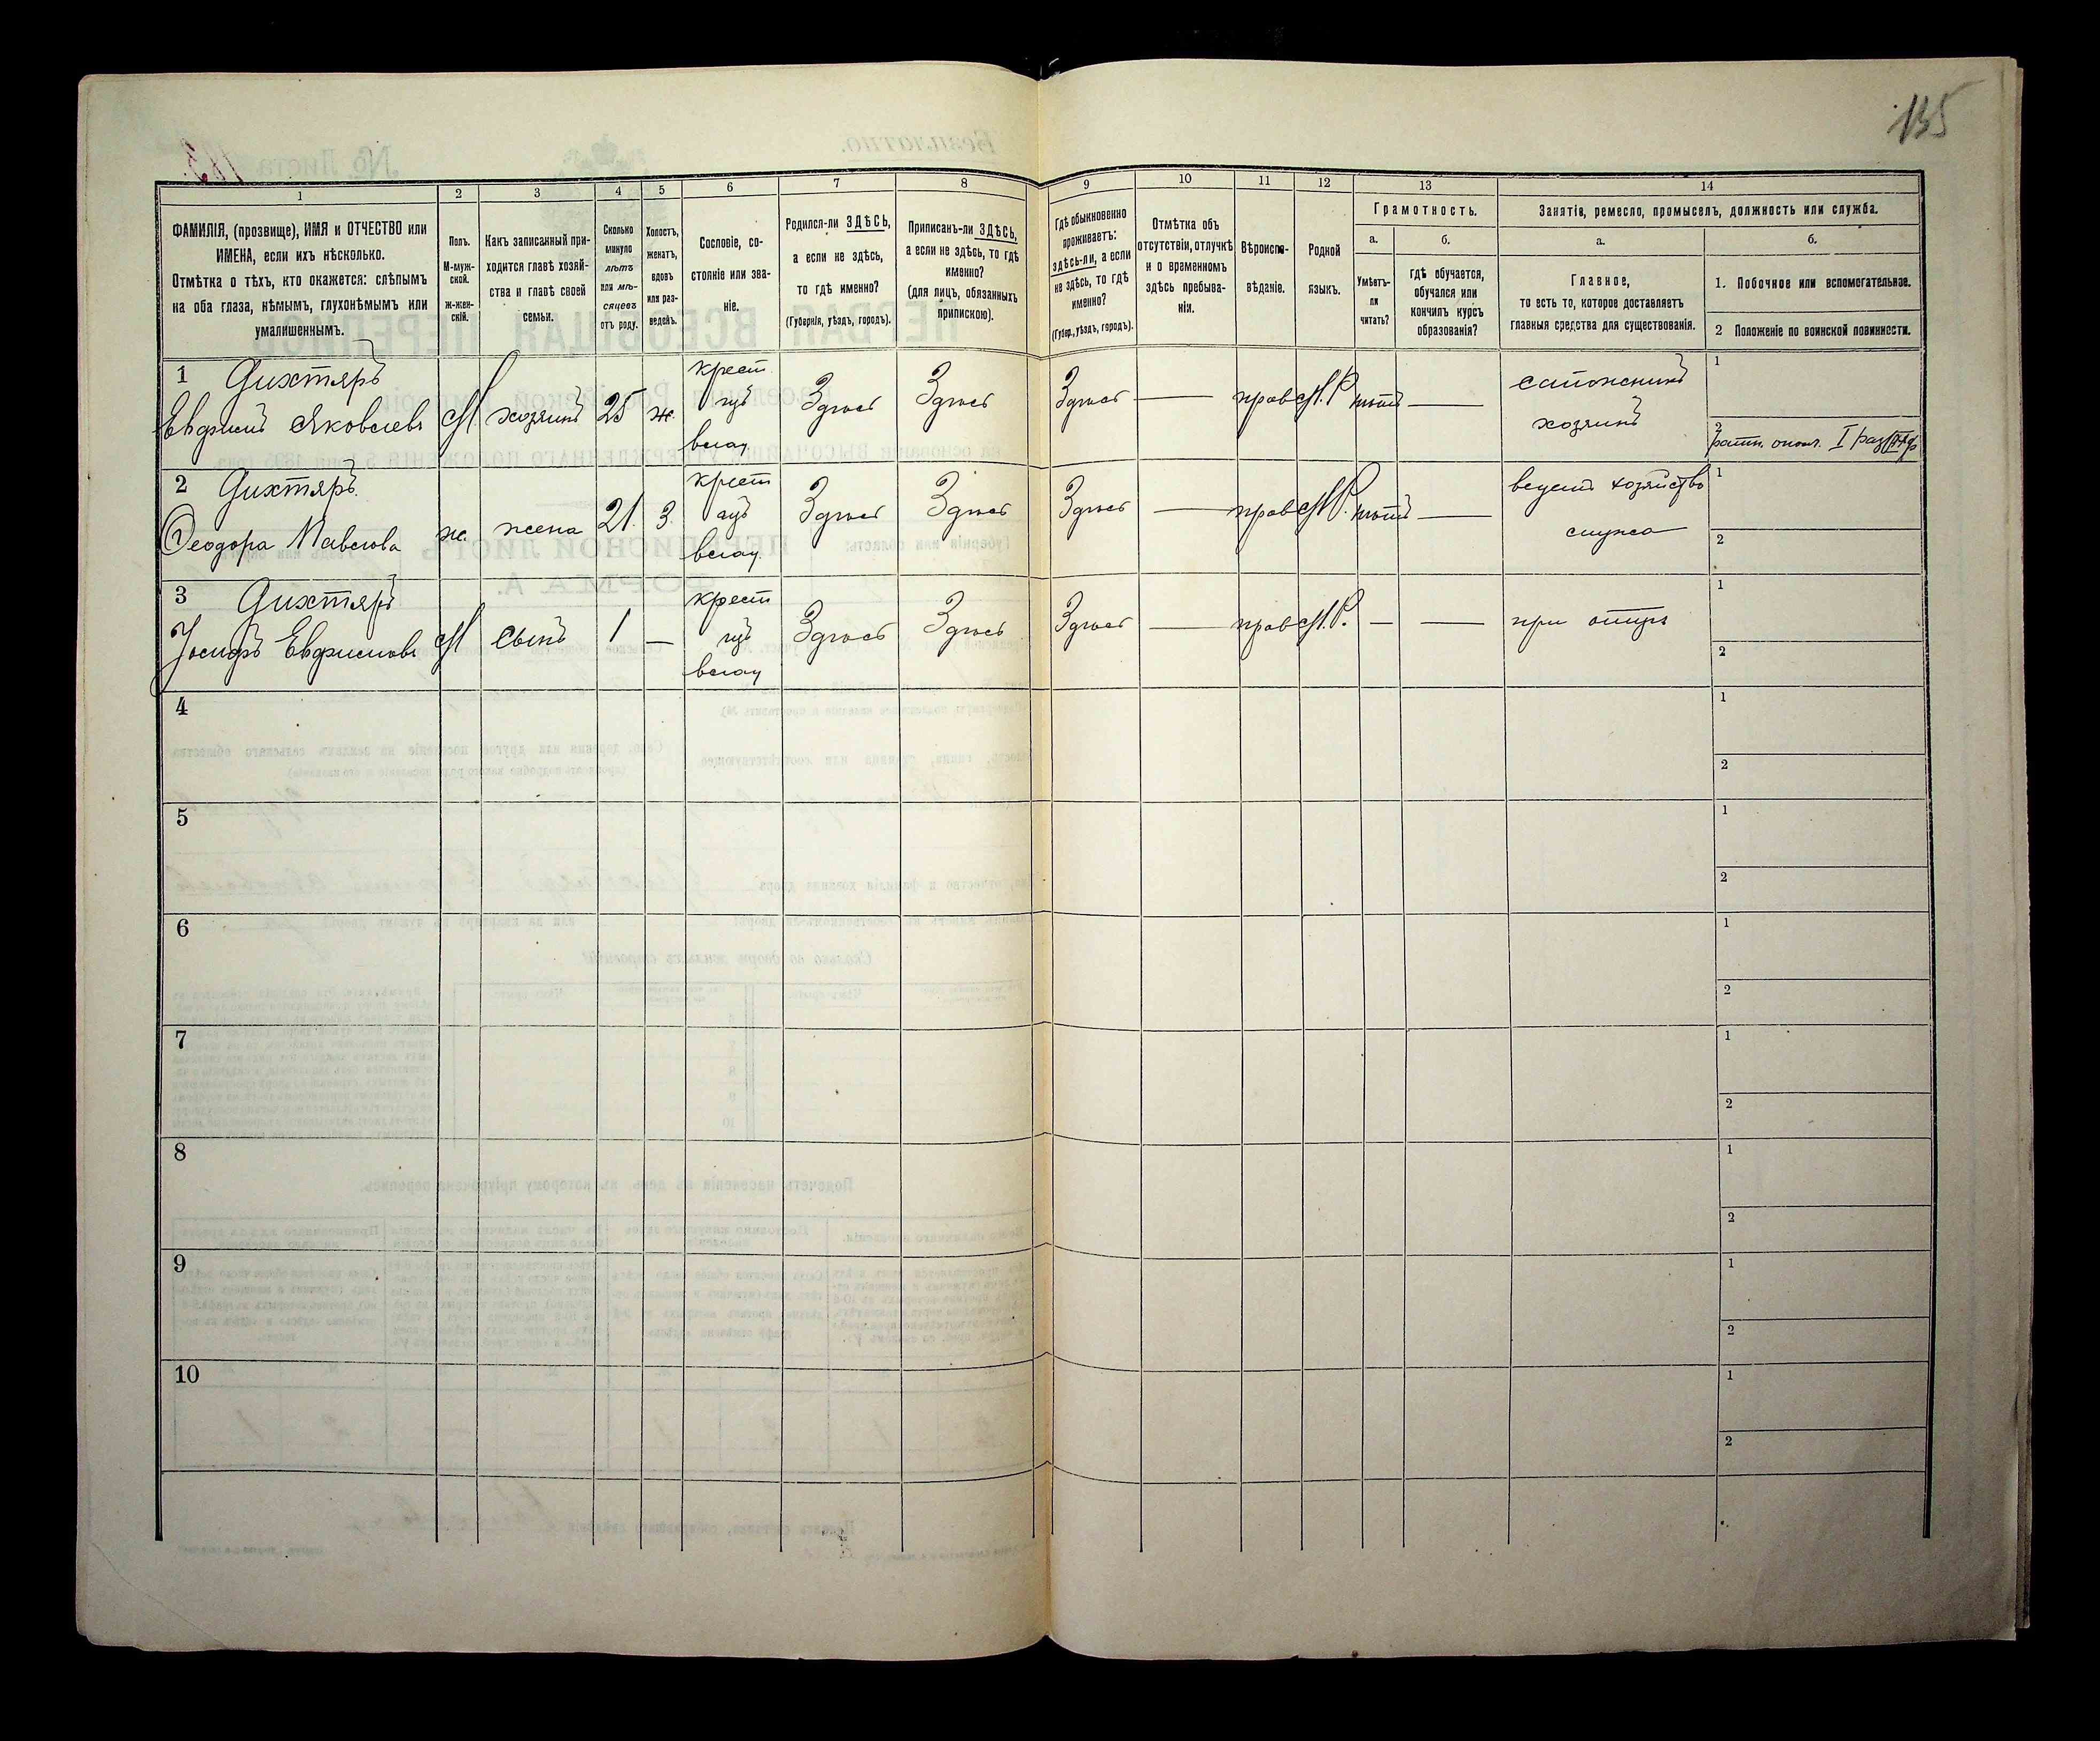 135
1 2 3 4 5 6 7 8 9 10 11 12 13 14
ФАМИЛІЯ, (прозвище), ИМЯ и ОТЧЕСТВО или
ИМЕНА, если ихъ нѣсколько.
Отмѣтка о тѣхъ, кто окажется: слѣпымъ
на оба глаза, нѣмымъ, глухонѣмымъ или
умалишеннымъ.
Полъ.
М-муж-
ской.
ж-жен-
скій.
Какъ записанный при-
ходится главѣ хозяй-
ства и главѣ своей
семьи.
Сколько
минуло
лѣтъ
или мѣ-
сяцевъ
отъ роду.
Холостъ,
женатъ,
вдовъ
или раз-
веденъ.
Сословіе, со-
стояніе или зва-
ніе.
Родился-ли ЗДѢСЬ,
а если не здѣсь,
то гдѣ именно?
(Губернія, уѣздъ, городъ).
Приписанъ-ли ЗДѢСЬ,
а если не здѣсь, то гдѣ
именно?
(для лицъ, обязанныхъ
припискою).
Гдѣ обыкновенно
проживаетъ:
здѣсь-ли, а если
не здѣсь, то гдѣ
именно?
(Губер., уѣздъ, городъ).
Отмѣтка объ
отсутствіи, отлучкѣ
и о временномъ
здѣсь пребыва-
ніи.
Вѣроиспо-
вѣданіе.
Родной
языкъ.
Грамотность.
а.
Умѣетъ-
ли
читать?
б.
гдѣ обучается,
обучался или
кончилъ курсъ
образованія?
Занятіе, ремесло, промыселъ, должность или служба.
а.
Главное,
то есть то, которое доставляетъ
главныя средства для существованія.
б.
1. Побочное или вспомогательное.
2 Положеніе по воинской повинности.
1 Дихтяръ
Евфимъ Яковлевъ М. хозяинъ 25 ж. крест изъ влад Здѣсь Здѣсь Здѣсь — прав М.Р нѣтъ — сапожникъ хозяинъ 1
2 ратн. опол. I раз
2 Дихтяръ.
Ѳеодора Павлова ж. жена 21. З. крест изъ влад. Здѣсь Здѣсь Здѣсь — прав М.Р. нѣтъ — ведетъ хозяйство мужа 1
2
3 Дихтяръ
Іосифъ Евфимовъ М сынъ 1 — крест изъ влад Здѣсь Здѣсь Здѣсь — прав М.Р. — — при отцѣ 1
2
4 1
2
5 1
2
6 1
2
7 1
2
8 1
2
9 1
2
10 1
2